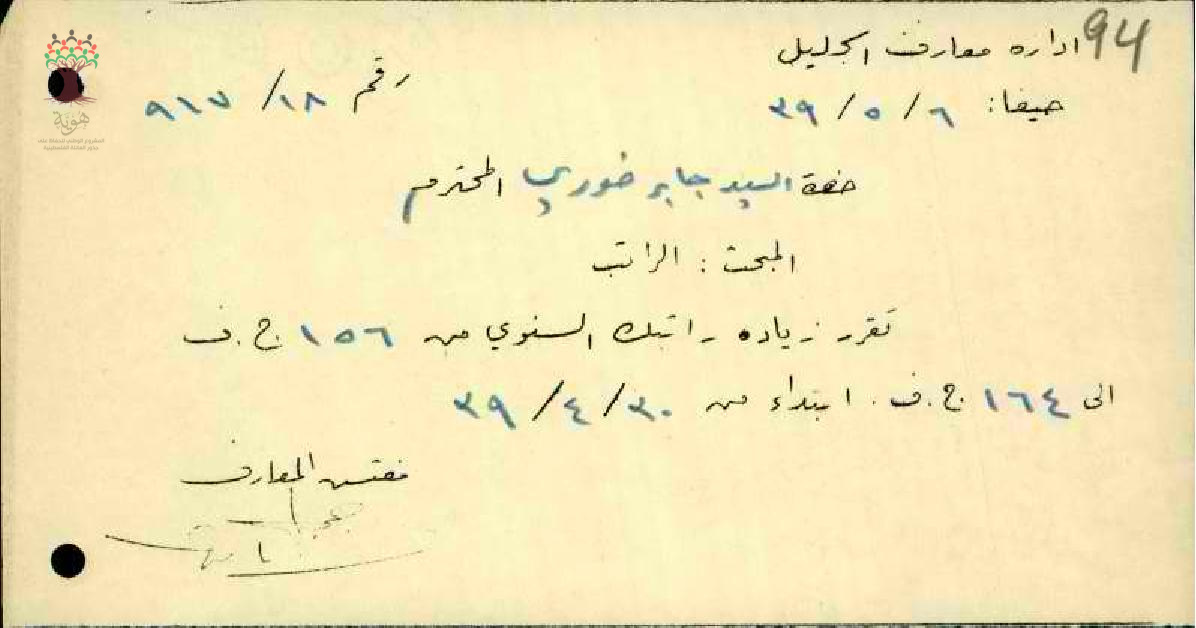 94
اداره معارف الجليل
حيفا: ٦/٥/٣٩ رقم ١٨/٩١٧
حضرة السيد جابر خوري المحترم
المبحث: الراتب
تقرر زياده راتبك السنوي من ١٥٦ ج.ف
الى ١٦٤ ج.ف. ابتداء من ٣٠/٤/٣٩
مفتش المعارف
هوية